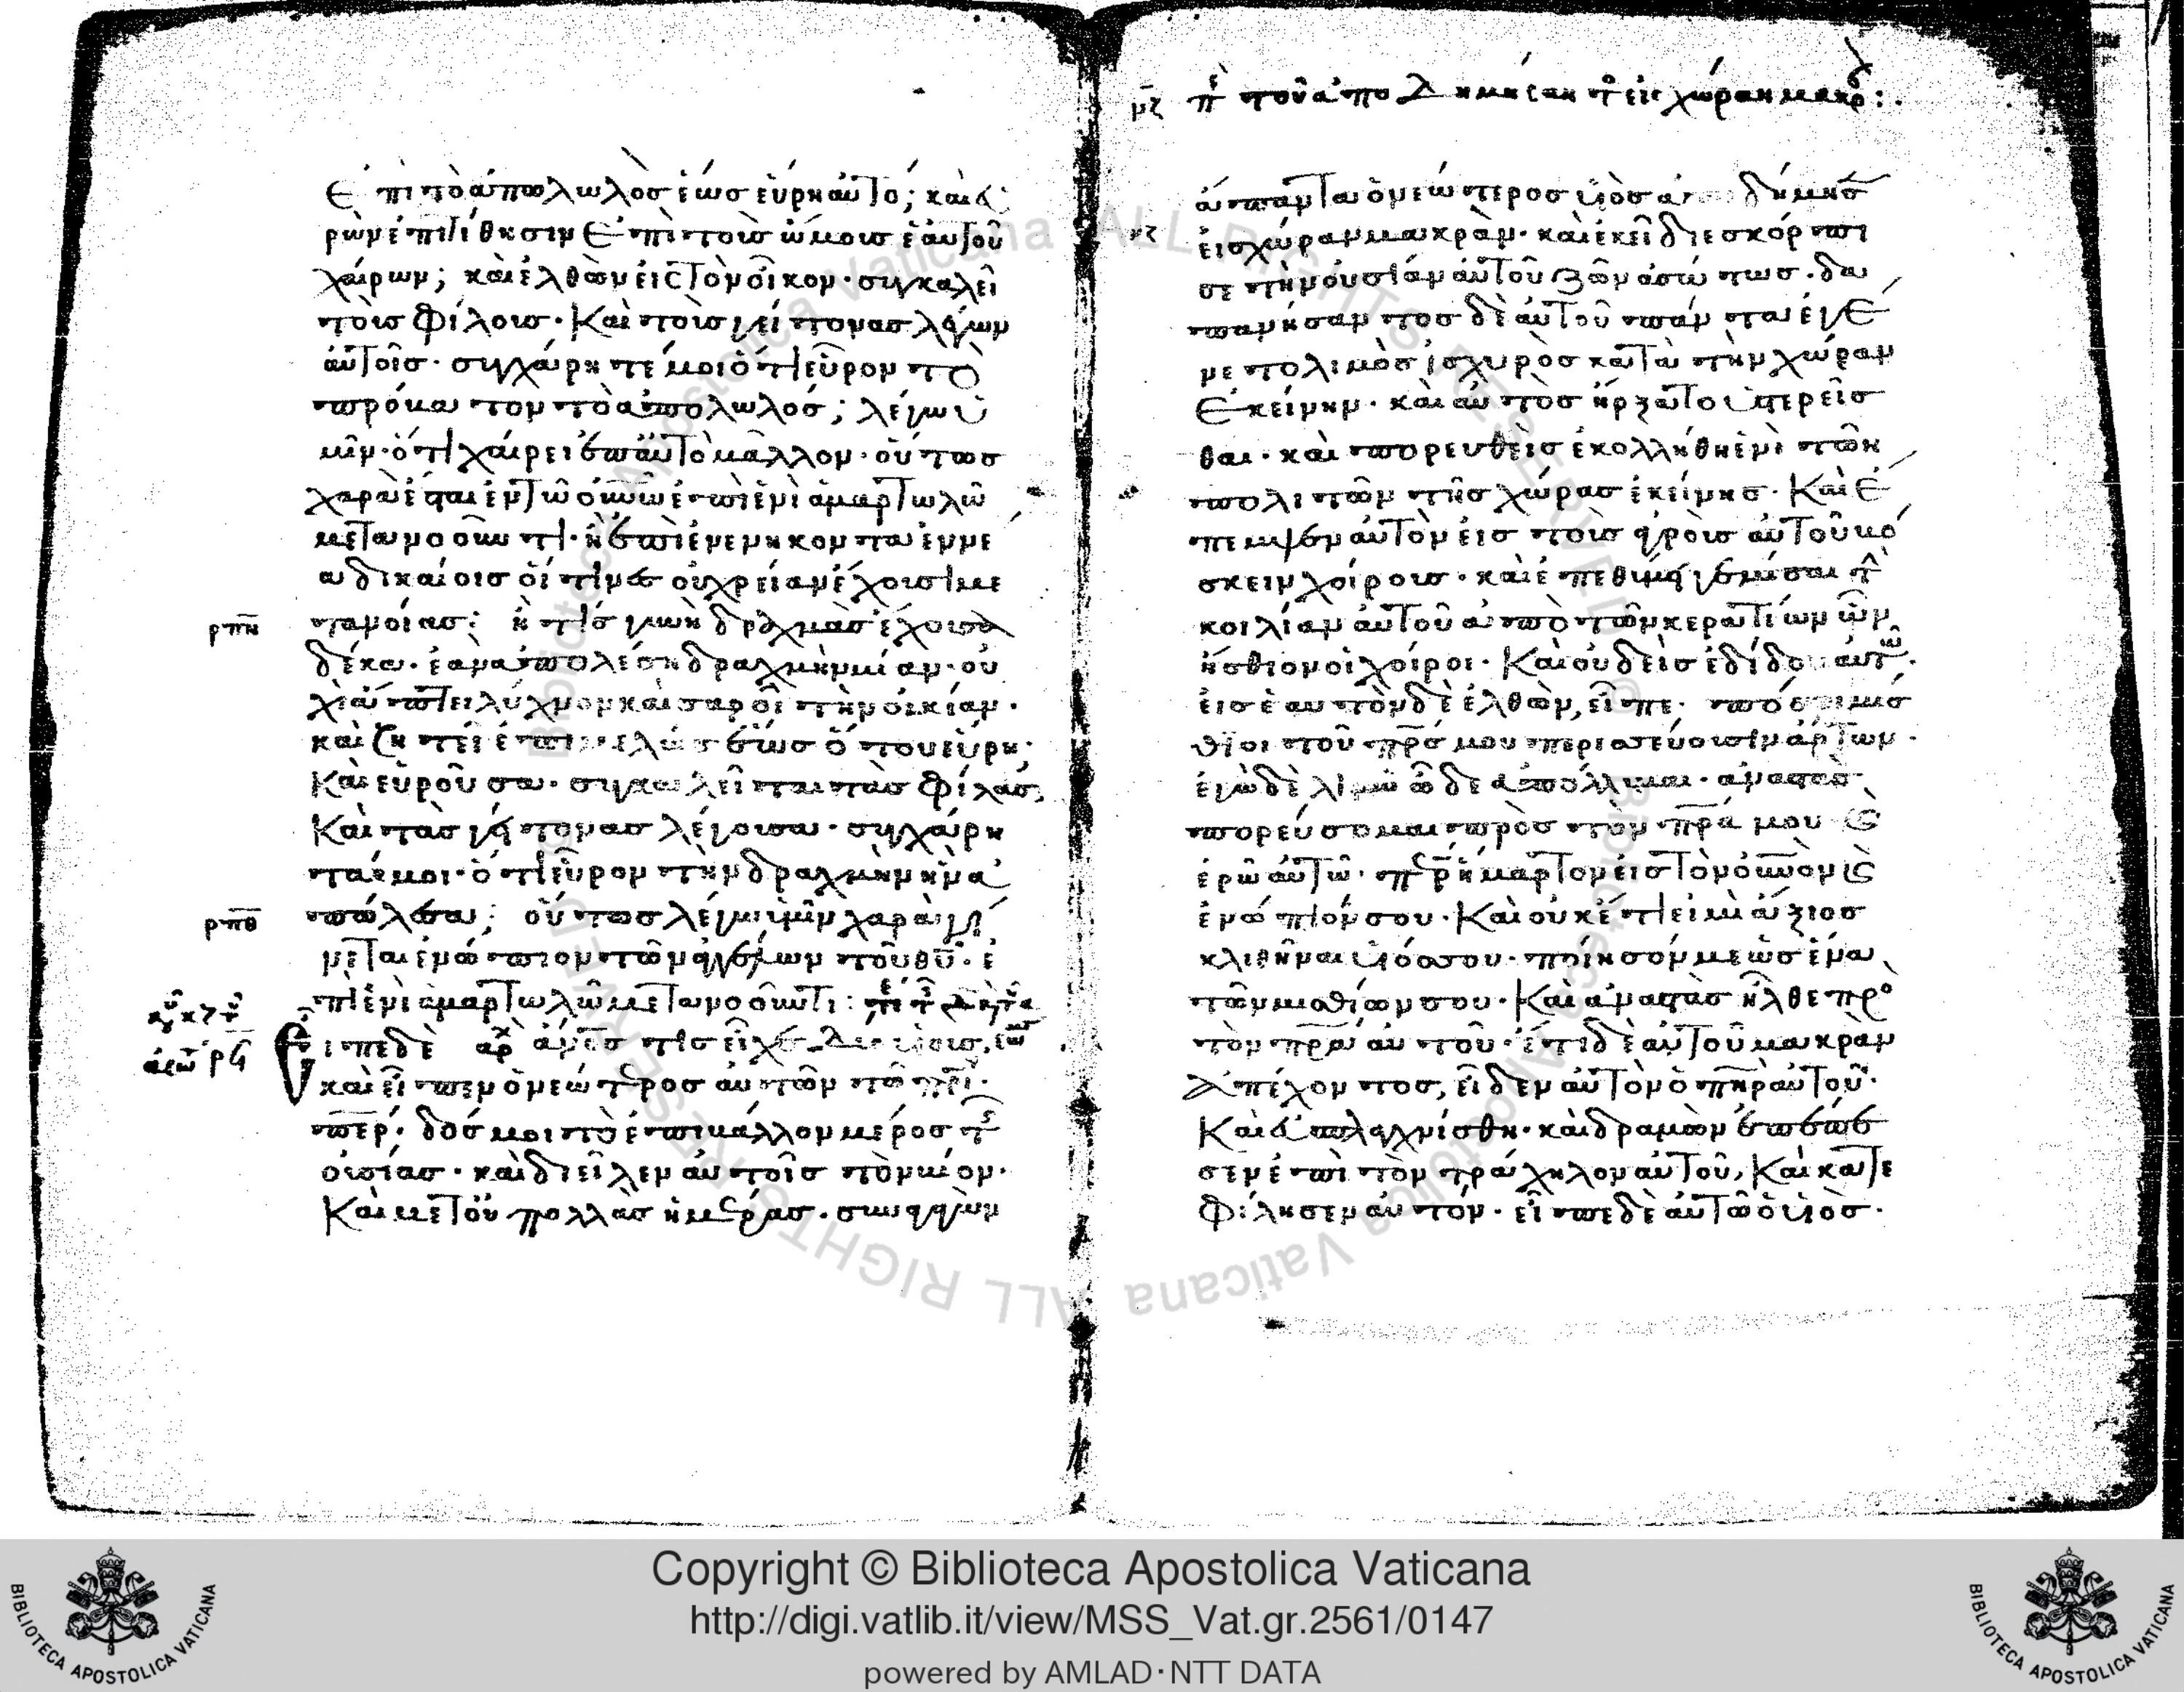 Ἐπὶ τὸ ἀπολωλὸσ ἕωσ εὕρη αὐτό; καὶ εὑ
ρὼν ἐπιτίθησιν ἐπὶ τοὺσ ὤμουσ ἑαυτοῦ
χαίρων; καὶ ἐλθὼν εἰς τὸν οἶκον· συγκαλεῖ
τοὺσ φίλουσ· Καὶ τοὺσ γείτονασ λέγων
αὐτοῖσ· συγχάρητέ μοι ὅτι εὗρον τὸ
πρόβατον τὸ ἀπολωλόσ; λέγω ὑ
μῖν· ὅτι χαίρει ἐπ αὐτὸ μᾶλλον· οὕτωσ
χαρὰ ἔσται ἐν τῶ οὐνῶ ἐπὶ ἑνὶ ἁμαρτωλῶ
μετανοοῦντι· ἢ ἐπὶ ἐνενηκονταεννέ
α δικαίοισ οἵτινεσ οὐ χρείαν ἔχουσι με
ρπη
τανοίασ; ἢ τίσ γυνὴ δραχμὰσ ἔχουσα
δέκα· ἐὰν ἀπολέση δραχμὴν μίαν· οὐ
χὶ ἅπτει λύχνον καὶ σαροῖ τὴν οἰκίαν·
καὶ ζητεῖ ἐπιμελῶσ ἕωσ ὅτου εὕρη;
Καὶ εὑροῦσα· συγκαλεῖται τὰσ φίλασ,
Καὶ τὰσ γείτονασ λέγουσα· συγχάρη
τέ μοι· ὅτι εὗρον τὴν δραχμὴν ἣν ἀ
ρπθ
πώλεσα; οὕτωσ λέγω ὑμῖν χαρὰ γί
νεται ἐνώπιον τῶν ἀγγέλων τοῦ θυ· ἐ
πὶ ἑνὶ ἁμαρτωλῶ μετανοοῦντι:
ρϟ
εἶπε δὲ ανοσ τισ εἶχε δύο υἱούσ,
καὶ εἶπεν ὁ νεώτεροσ αὐτῶν τῶ πρι·
περ· δόσ μοι τὸ ἐπιβάλλον μέροσ τῆσ
οὐσίασ· καὶ διεῖλεν αὐτοῖσ τὸν βίον·
Καὶ μετ οὐ πολλὰσ ἡμέρασ· συναγαγὼν
μζ τοῦ ἀποδημήσαντ εἰς χώραν μακρ:
ἅπαντα ὁ νεώτεροσ υἱὸσ ἀπεδήμησ
εἰσ χώραν μακρὰν· καὶ ἐκεῖ διεσκόρπι
σε τὴν οὐσίαν αὐτοῦ ζῶν ἀσώτωσ· δα
πανήσαντοσ δὲ αὐτοῦ πάντα ἐγέ
νετο λιμὸσ ἰσχυρὸσ κατὰ τὴν χώραν
Ἐκείνην· καὶ αὐτὸσ ἤρξατο ὑστερεῖσ
θαι· καὶ πορευθεὶσ ἐκολλήθη ἑνὶ τῶν
πολιτῶν τῆσ χώρασ ἐκείνησ· Καὶ ἔ
πεμψεν αὐτὸν εἰσ τοὺσ ἀγροὺσ αὐτοῦ βό
σκειν χοίρουσ· καὶ ἐπεθύμει γεμίσαι τ
κοιλίαν αὐτοῦ ἀπὸ τῶν κερατίων ὧν
ἤσθιον οἱ χοίροι· Καὶ οὐδεὶσ ἐδίδου αὐτῶ·
εἰσ ἑαυτὸν δὲ ἐλθὼν, εἶπε· πόσοι μισ
θιοι τοῦ πρσ μου περισσεύουσιν ἄρτων·
ἐγὼ δὲ λιμῶ ὧδε ἀπόλλυμαι· ἀναστὰσ
πορεύσομαι πρὸσ τὸν πρα μου καὶ
ἐρῶ αὐτῶ· περ ἥμαρτον εἰσ τὸν οὐνον καὶ
ἐνώπιόν σου· Καὶ οὐκέτι εἰμὶ ἄξιοσ
κλιθῆναι υἱόσ σου· ποίησόν με ὡσ ἕνα
τῶν μισθίων σου· Καὶ ἀναστὰσ ἦλθε προ
τὸν πρα αὐτοῦ· ἔτι δὲ αὐτοῦ μακρὰν
ἀπέχοντοσ, εἶδεν αὐτὸν ὁ πηρ αὐτοῦ·
Καὶ ἐσπλαγχνίσθη· καὶ δραμὼν ἐπέπε
σεν ἐπὶ τὸν τράχηλον αὐτοῦ, Καὶ κατε
Φίλησεν αὐτόν· εἶπε δὲ αὐτῶ ὁ υἱὸσ·
Copyright © Biblioteca Apostolica Vaticana
http://digi.vatlib.it/view/MSS_Vat.gr.2561/0147
powered by AMLAD·NTT DATA
BIBLIOTECA APOSTOLICA VATICANA
BIBLIOTECA APOSTOLICA VATICANA